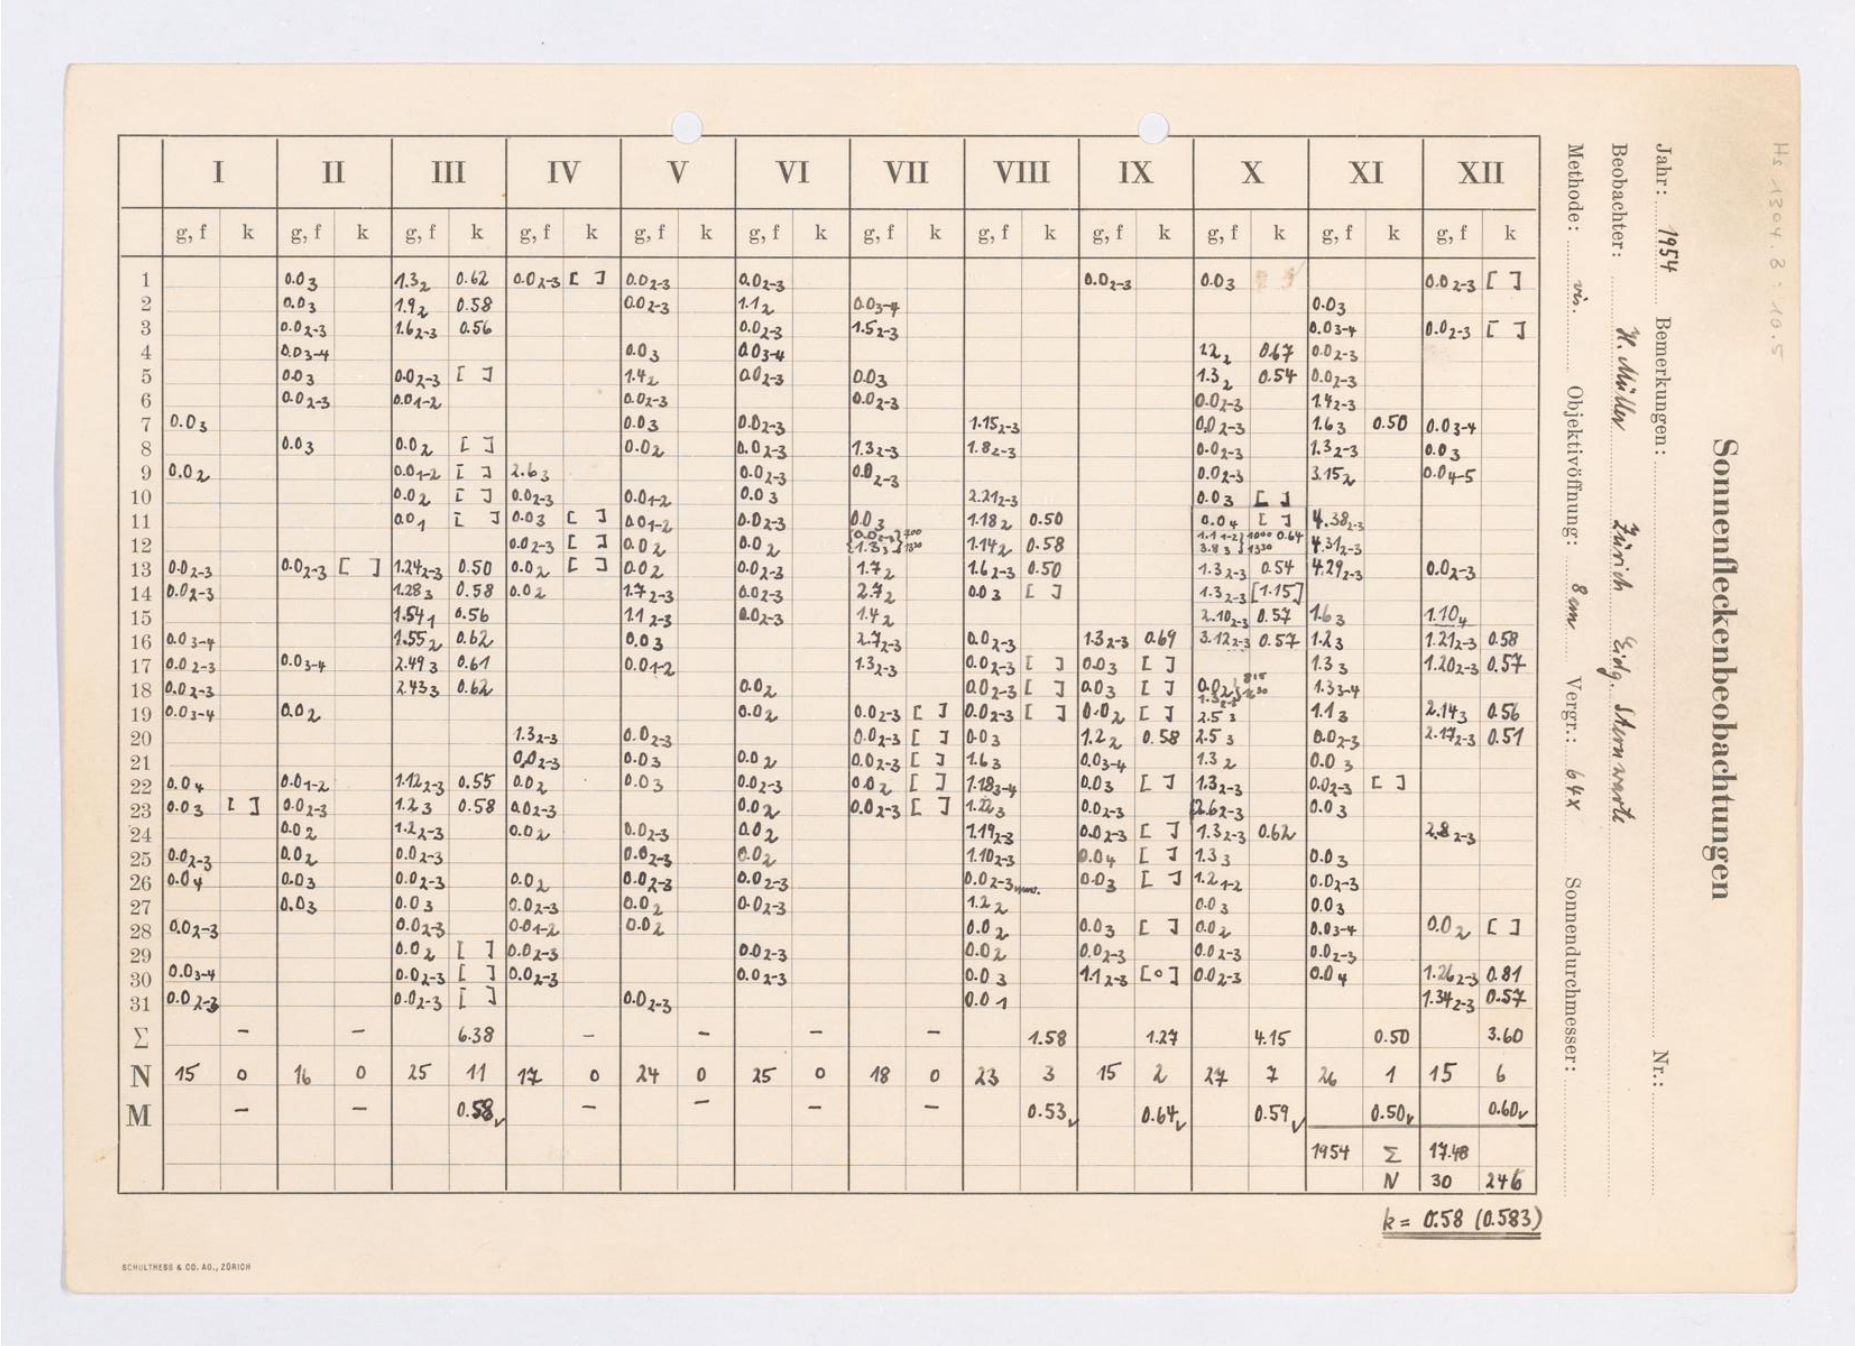 Hs 1304.8 : 10.5
Sonnenfleckenbeobachtungen
Jahr: 1954 Bemerkungen: Nr.:
Beobachter: H. Müller Zürich Eidg. Sternwarte
Methode: vis. Objektivöffnung: 8 cm Vergr.: 64x Sonnendurchmesser:
I II III IV V VI VII VIII IX X XI XII
g, f k g, f k g, f k g, f k g, f k g, f k g, f k g, f k g, f k g, f k g, f k g, f k
1 0.0 3 1.3 2 0.62 0.0 2-3 [ ] 0.0 2-3 0.0 2-3 0.0 2-3 0.0 3 0.0 2-3 [ ]
2 0.0 3 1.9 2 0.58 0.0 2-3 1.1 2 0.0 3-4 0.0 3
3 0.0 2-3 1.6 2-3 0.56 0.0 2-3 1.5 2-3 0.0 3-4 0.0 2-3 [ ]
4 0.0 3-4 0.0 3 0.0 3-4 0.67 0.0 2-3
5 0.0 3 0.0 2-3 [ ] 1.4 2 0.0 2-3 0.0 3 1.3 2 0.54 0.0 2-3
6 0.0 2-3 0.0 1-2 0.0 2-3 0.0 2-3 0.0 2-3 1.4 2-3
7 0.0 3 0.0 3 0.0 2-3 1.15 2-3 0.0 2-3 1.6 3 0.50 0.0 3-4
8 0.0 3 0.0 2 [ ] 0.0 2 0.0 2-3 1.3 2-3 1.8 2-3 0.0 2-3 1.3 2-3 0.0 3
9 0.0 2 0.0 1-2 [ ] 2.6 3 0.0 2-3 0.0 2-3 0.0 2-3 3.15 2 0.0 4-5
10 0.0 2 [ ] 0.0 2-3 0.0 1-2 0.0 3 2.21 2-3 0.0 3 [ ]
11 0.0 1 [ ] 0.0 3 [ ] 0.0 1-2 0.0 2-3 0.0 3 1.18 2 0.50 0.0 4 [ ] 4.38 2-3
12 0.0 2-3 [ ] 0.0 2 0.0 2 1.3 3 1.14 2 0.58 1.1 1-2 1000 0.64 3.8 3 1330 4.31 2-3
13 0.0 2-3 0.0 2-3 [ ] 1.24 2-3 0.50 0.0 2 [ ] 0.0 2 0.0 2-3 1.7 2 1.6 2-3 0.50 1.3 2-3 0.54 4.29 2-3 0.0 2-3
14 0.0 2-3 1.28 3 0.58 0.0 2 1.7 2-3 0.0 2-3 2.7 2 0.0 3 [ ] 1.3 2-3 [1.15]
15 1.54 1 0.56 1.1 2-3 0.0 2-3 1.4 2 2.10 2-3 0.57 1.6 3 1.10 4
16 0.0 3-4 1.55 2 0.62 0.0 3 2.7 2-3 0.0 2-3 1.3 2-3 0.69 3.12 2-3 0.57 1.2 3 1.21 2-3 0.58
17 0.0 2-3 0.0 3-4 2.49 3 0.61 0.0 1-2 1.3 2-3 0.0 2-3 [ ] 0.0 3 [ ] 1.3 3 1.20 2-3 0.57
18 0.0 2-3 2.43 3 0.62 0.0 2 0.0 2-3 [ ] 0.0 3 [ ] 0.0 2 1.3 3-4
19 0.0 3-4 0.0 2 0.0 2 0.0 2-3 [ ] 0.0 2-3 [ ] 0.0 2 [ ] 2.5 3 1.1 3 2.14 3 0.56
20 1.3 2-3 0.0 2-3 0.0 2-3 [ ] 0.0 3 1.2 2 0.58 2.5 3 0.0 2-3 2.17 2-3 0.51
21 0.0 2-3 0.0 3 0.0 2 0.0 2-3 [ ] 1.6 3 0.0 3-4 1.3 2 0.0 3
22 0.0 4 0.0 1-2 1.12 2-3 0.55 0.0 2 0.0 3 0.0 2-3 0.0 2 [ ] 1.18 3-4 0.0 3 [ ] 1.3 2-3 0.0 2-3 [ ]
23 0.0 3 [ ] 0.0 2-3 1.2 3 0.58 0.0 2-3 0.0 2 0.0 2-3 [ ] 1.22 3 0.0 2-3 2.6 2-3 0.0 3
24 0.0 2 1.2 2-3 0.0 2 0.0 2-3 0.0 2 1.19 2-3 0.0 2-3 [ ] 1.3 2-3 0.62 2.8 2-3
25 0.0 2-3 0.0 2 0.0 2-3 0.0 2-3 0.0 2 1.10 2-3 0.0 4 [ ] 1.3 3 0.0 3
26 0.0 4 0.0 3 0.0 2-3 0.0 2 0.0 2-3 0.0 2-3 0.0 2-3 0.0 3 [ ] 1.2 1-2 0.0 2-3
27 0.0 3 0.0 3 0.0 2-3 0.0 2 0.0 2-3 1.2 2 0.0 3 0.0 3
28 0.0 2-3 0.0 2-3 0.0 1-2 0.0 2 0.0 2 0.0 3 [ ] 0.0 2 0.0 3-4 0.0 2 [ ]
29 0.0 2 [ ] 0.0 2-3 0.0 2-3 0.0 2 0.0 2-3 0.0 2-3 0.0 2-3
30 0.0 3-4 0.0 2-3 [ ] 0.0 2-3 0.0 2-3 0.0 3 1.1 2-3 [0] 0.0 2-3 0.0 4 1.26 2-3 0.81
31 0.0 2-3 0.0 2-3 [ ] 0.0 2-3 0.0 1 1.34 2-3 0.57
Σ – – 6.38 – – – – 1.58 1.27 4.15 0.50 3.60
N 15 0 16 0 25 11 17 0 24 0 25 0 18 0 23 3 15 2 27 7 26 1 15 6
M – – 0.58 – – – – 0.53 0.64 0.59 0.50 0.60
1954 Σ 17.48
N 30 246
k = 0.58 (0.583)
SCHULTHESS & CO. AG., ZÜRICH